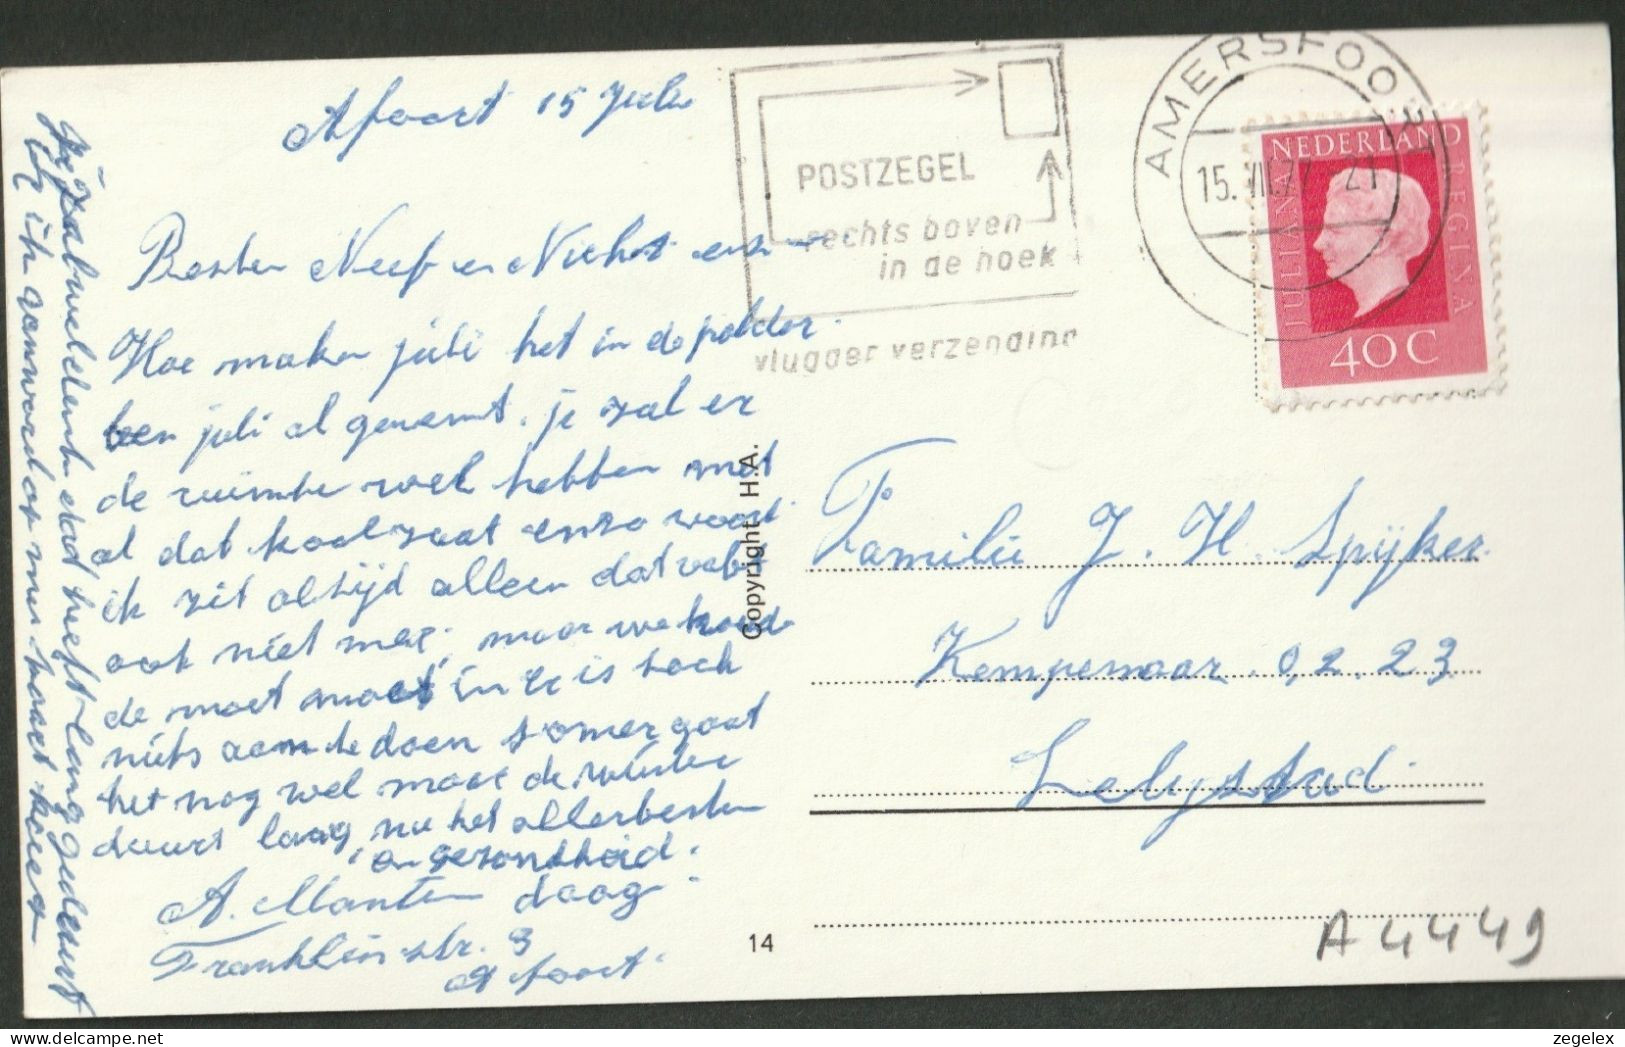 Afoort 15 Juli
Besten Neef en Nicht enz
Hoe maken juli het in de polder.
ben juli al gewent. je zal er
de ruimte wel hebben met
al dat koolzaat enzo voort.
ik zit altijd alleen dat valt
ook niet mee, maar we
de moet moet in er is toch
niets aan te doen somer gaat
het nog wel maar de winter
duurt lang, nu het allerbesten
en gezondheid.
A. Manten daag.
Franklin str. 3
Afoort.
dat heeft lang geduurt
ik
POSTZEGEL
rechts boven
in de hoek
vlugger verzending
AMERSFOORT
15.VII.77 21
NEDERLAND
JULIANA REGINA
40C
Copyright H.A.
14
Familie J. H. Spijker.
Kempenaar. 02.23
Lelystad.
A4449
zegelex